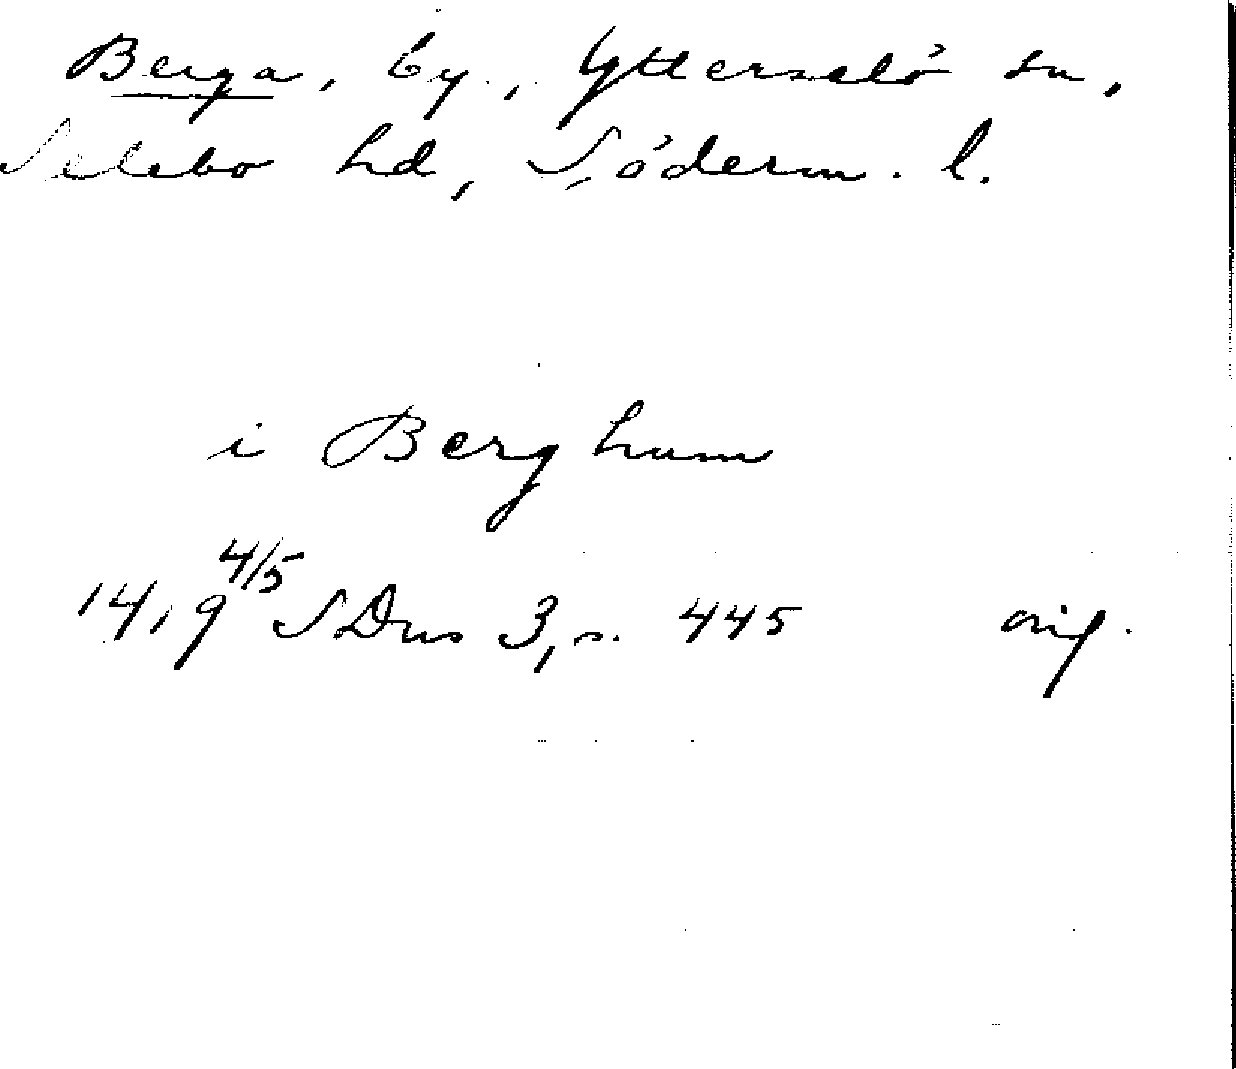 Berga, by, Ytterselö sn,
Selebo hd, Söderm. l.
i Berghum
1419 4/5 SDns 3, s. 445 orig.